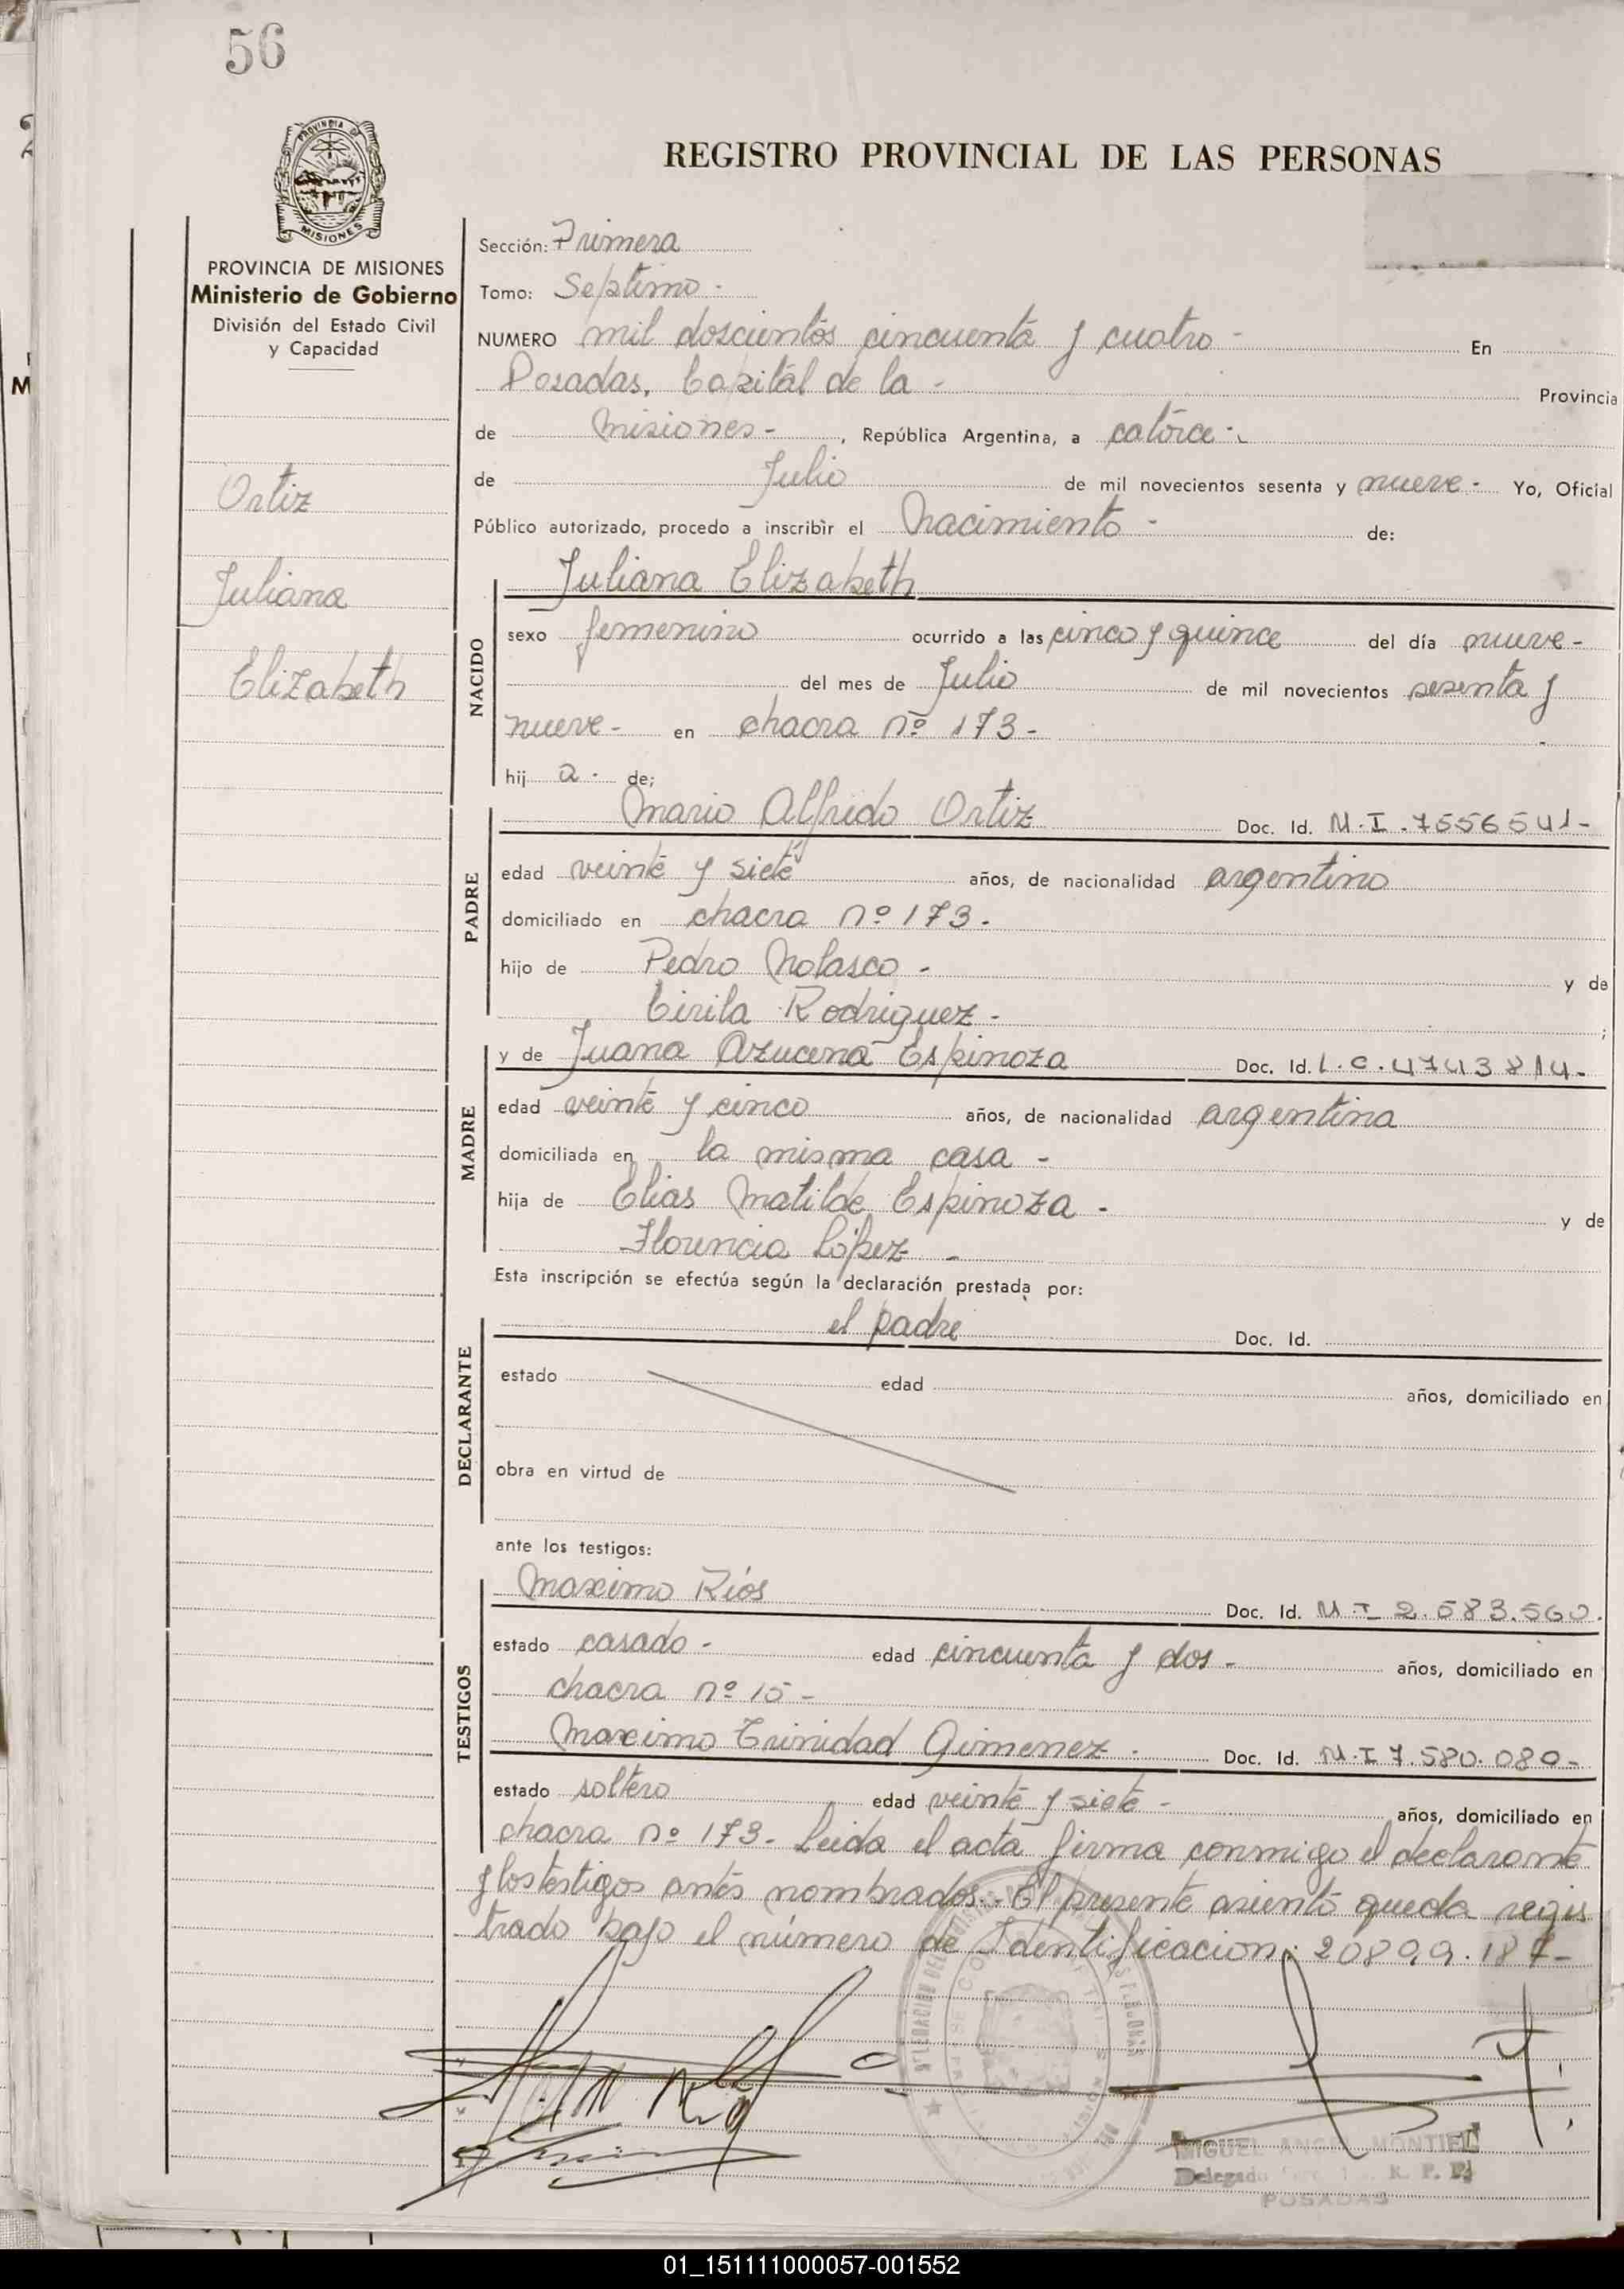 56
REGISTRO PROVINCIAL DE LAS PERSONAS
PROVINCIA DE
MISIONES
PROVINCIA DE MISIONES
Ministerio de Gobierno
División del Estado Civil
y Capacidad
Ortiz
Juliana
Elizabeth
Sección: Primera
Tomo: Septimo -
NUMERO mil doscientos cincuenta y cuatro - En
Posadas, Capital de la - Provincia
de Misiones - , República Argentina, a catorce -
de Julio de mil novecientos sesenta y nueve - Yo, Oficial
Público autorizado, procedo a inscribir el Nacimiento - de:
Juliana Elizabeth
NACIDO
sexo femenino ocurrido a las cinco y quince del día nueve -
del mes de Julio de mil novecientos sesenta y
nueve - en chacra nº 173 -
hij a - de;
Mario Alfredo Ortiz Doc. Id. M.I. 7556541-
PADRE
edad veinte y siete años, de nacionalidad argentino
domiciliado en chacra nº 173 -
hijo de Pedro Nolasco - y de
Cirila Rodriguez - ;
y de Juana Azucena Espinoza Doc. Id. L.C. 4743814-
MADRE
edad veinte y cinco años, de nacionalidad argentina
domiciliada en la misma casa -
hija de Elias Matilde Espinoza - y de
Florencia López -
Esta inscripción se efectúa según la declaración prestada por:
el padre Doc. Id.
DECLARANTE
estado edad años, domiciliado en
obra en virtud de
ante los testigos:
Maximo Ríos Doc. Id. M.I 2.583.560.
TESTIGOS
estado casado - edad cincuenta y dos - años, domiciliado en
chacra nº 15 -
Maximo Trinidad Gimenez - Doc. Id. M.I 7.580.080-
estado soltero edad veinte y siete - años, domiciliado en
chacra nº 173 - Leida el acta firma conmigo el declarante
y los testigos antes nombrados.- El presente asiento queda regis
trado bajo el número de Identificacion: 20899.187-
MIGUEL ANGEL MONTIEL
Delegado R. P. P.
POSADAS
01_151111000057-001552